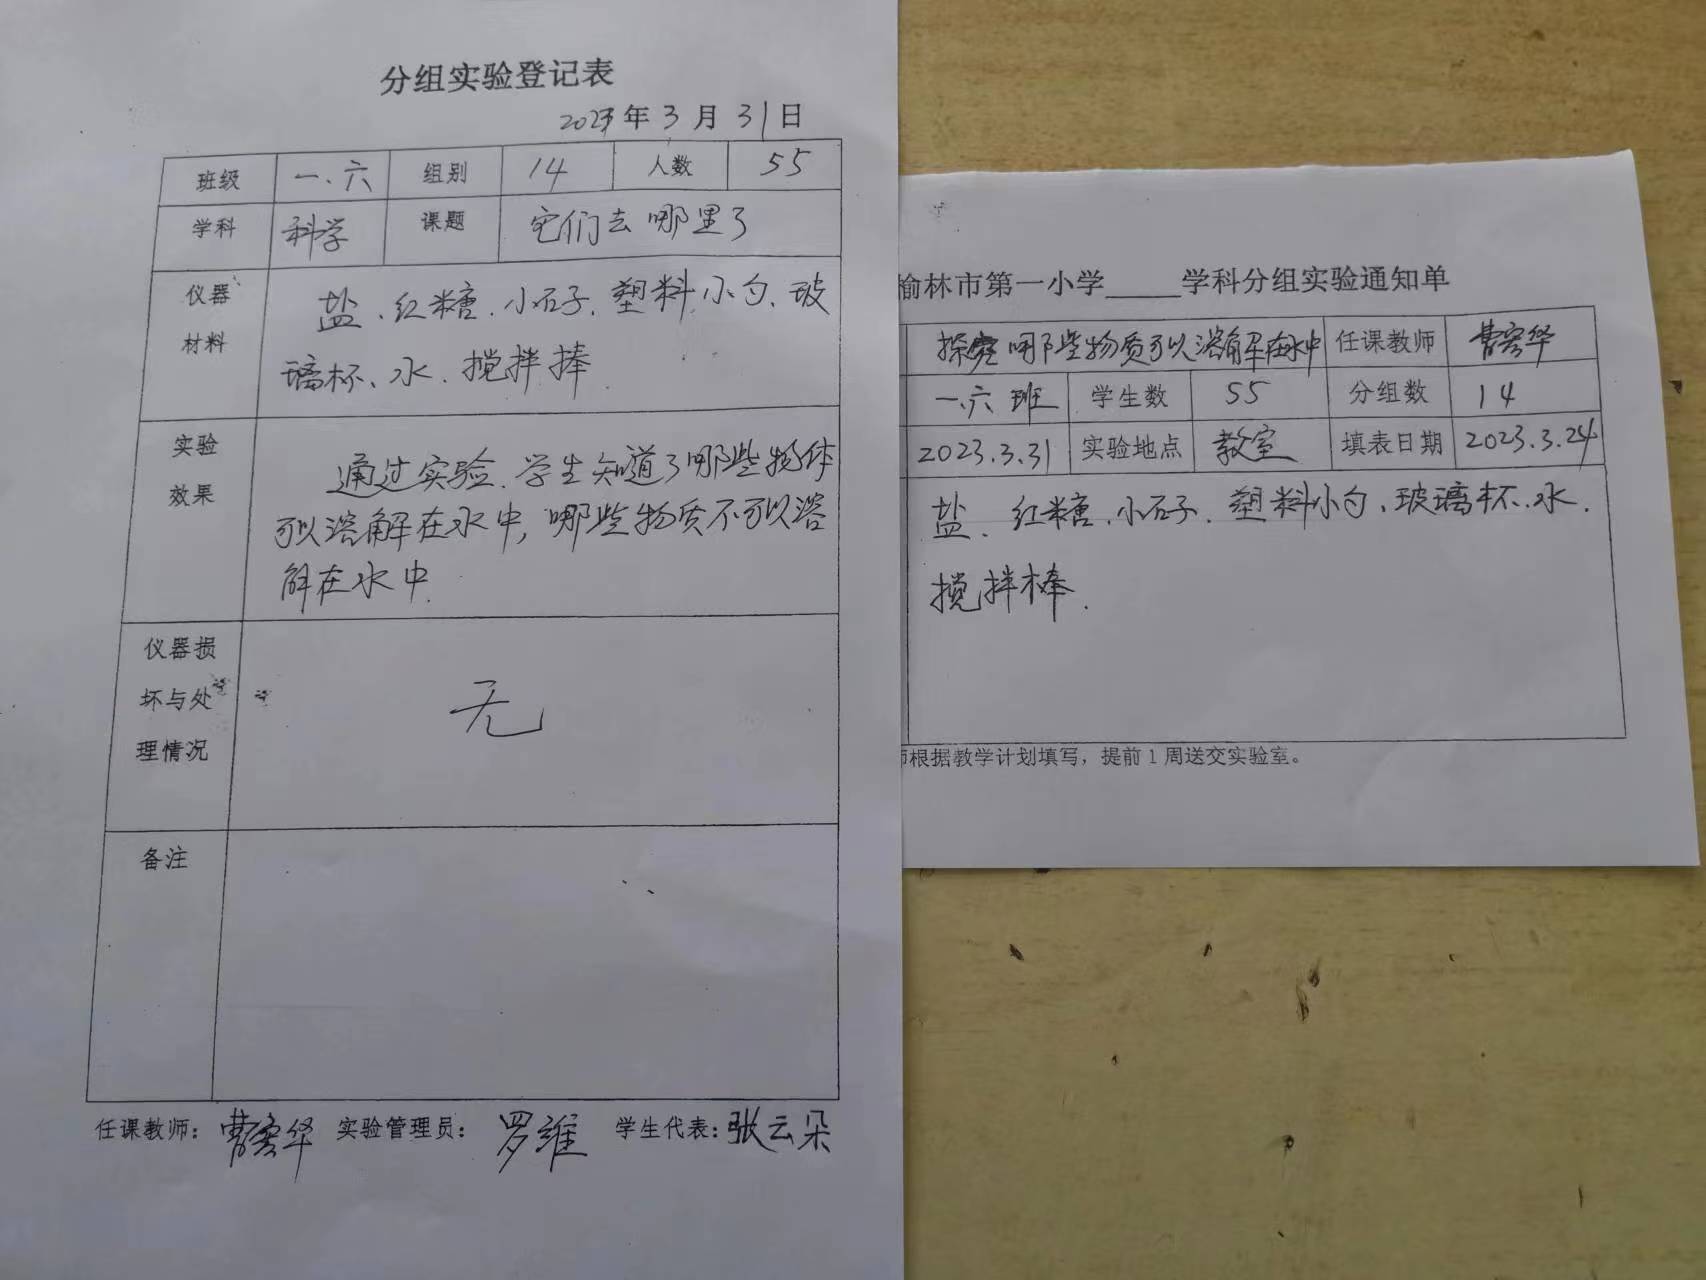 分组实验登记表
2023年3月31日
班级 一.六 组别 14 人数 55
学科 科学 课题 它们去哪里了
仪器材料 盐、红糖、小石子、塑料小勺、玻
璃杯、水、搅拌棒
实验效果 通过实验、学生知道了哪些物体
可以溶解在水中,哪些物质不可以溶
解在水中.
仪器损坏与处理情况 无
备注
任课教师: 曹 华 实验管理员: 罗维 学生代表: 张云朵
榆林市第一小学_____学科分组实验通知单
探究哪些物质可以溶解在水中 任课教师 曹 华
一.六班 学生数 55 分组数 14
2023.3.31 实验地点 教室 填表日期 2023.3.24
盐、红糖、小石子、塑料小勺、玻璃杯、水、
搅拌棒.
师根据教学计划填写，提前1周送交实验室。